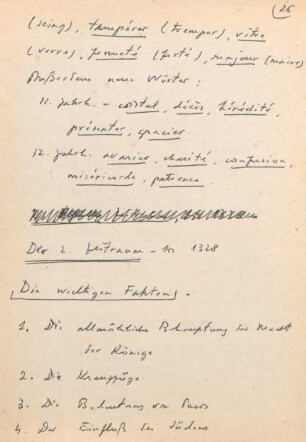 (26
(seing), tempérer (tremper), vitre
(verre), fermeté (ferté), majeur (maire)
Außerdem neue Wörter:
11. Jahrh. – cristal, décès, hérédité,
présenter, gracier
12. Jahrh. avarice, charité, confusion,
miséricorde, patience
Der 2. Zeitraum – bis 1328
Die wichtigen Fakten.
1. Die allmähliche Behauptung der Macht
der Könige
2. Die Kreuzzüge
3. Die Bedeutung von Paris
4. Der Einfluß des Südens